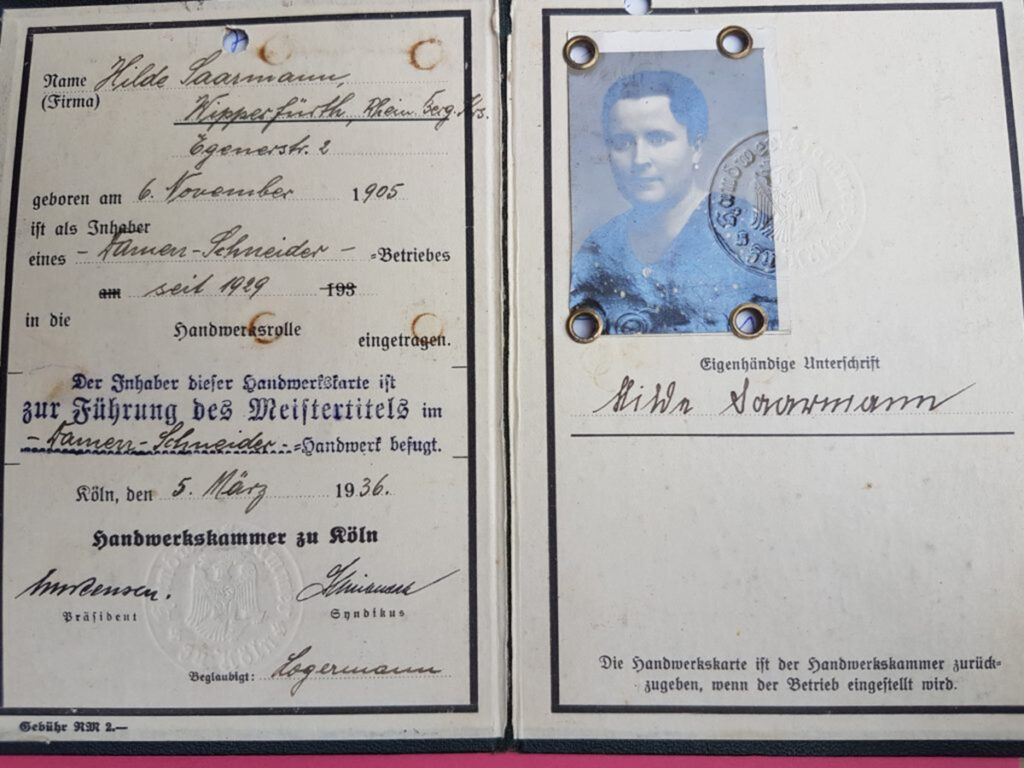 Name Hilde Saarmann,
(Firma) Wipperfürth, Rhein. Berg. Krs.
Egenerstr. 2
geboren am 6. November 1905
ist als Inhaber
eines - Damen-Schneider - =Betriebes
am seit 1929 193
in die Handwerksrolle eingetragen.
Der Inhaber dieser Handwerkskarte ist
zur Führung des Meistertitels im
- Damen-Schneider- =Handwerk befugt.
Köln, den 5. März 1936.
Handwerkskammer zu Köln
Präsident Syndikus
Beglaubigt: Logermann
Gebühr RM 2.—
Eigenhändige Unterschrift
Hilde Saarmann
Die Handwerkskarte ist der Handwerkskammer zurück-
zugeben, wenn der Betrieb eingestellt wird.